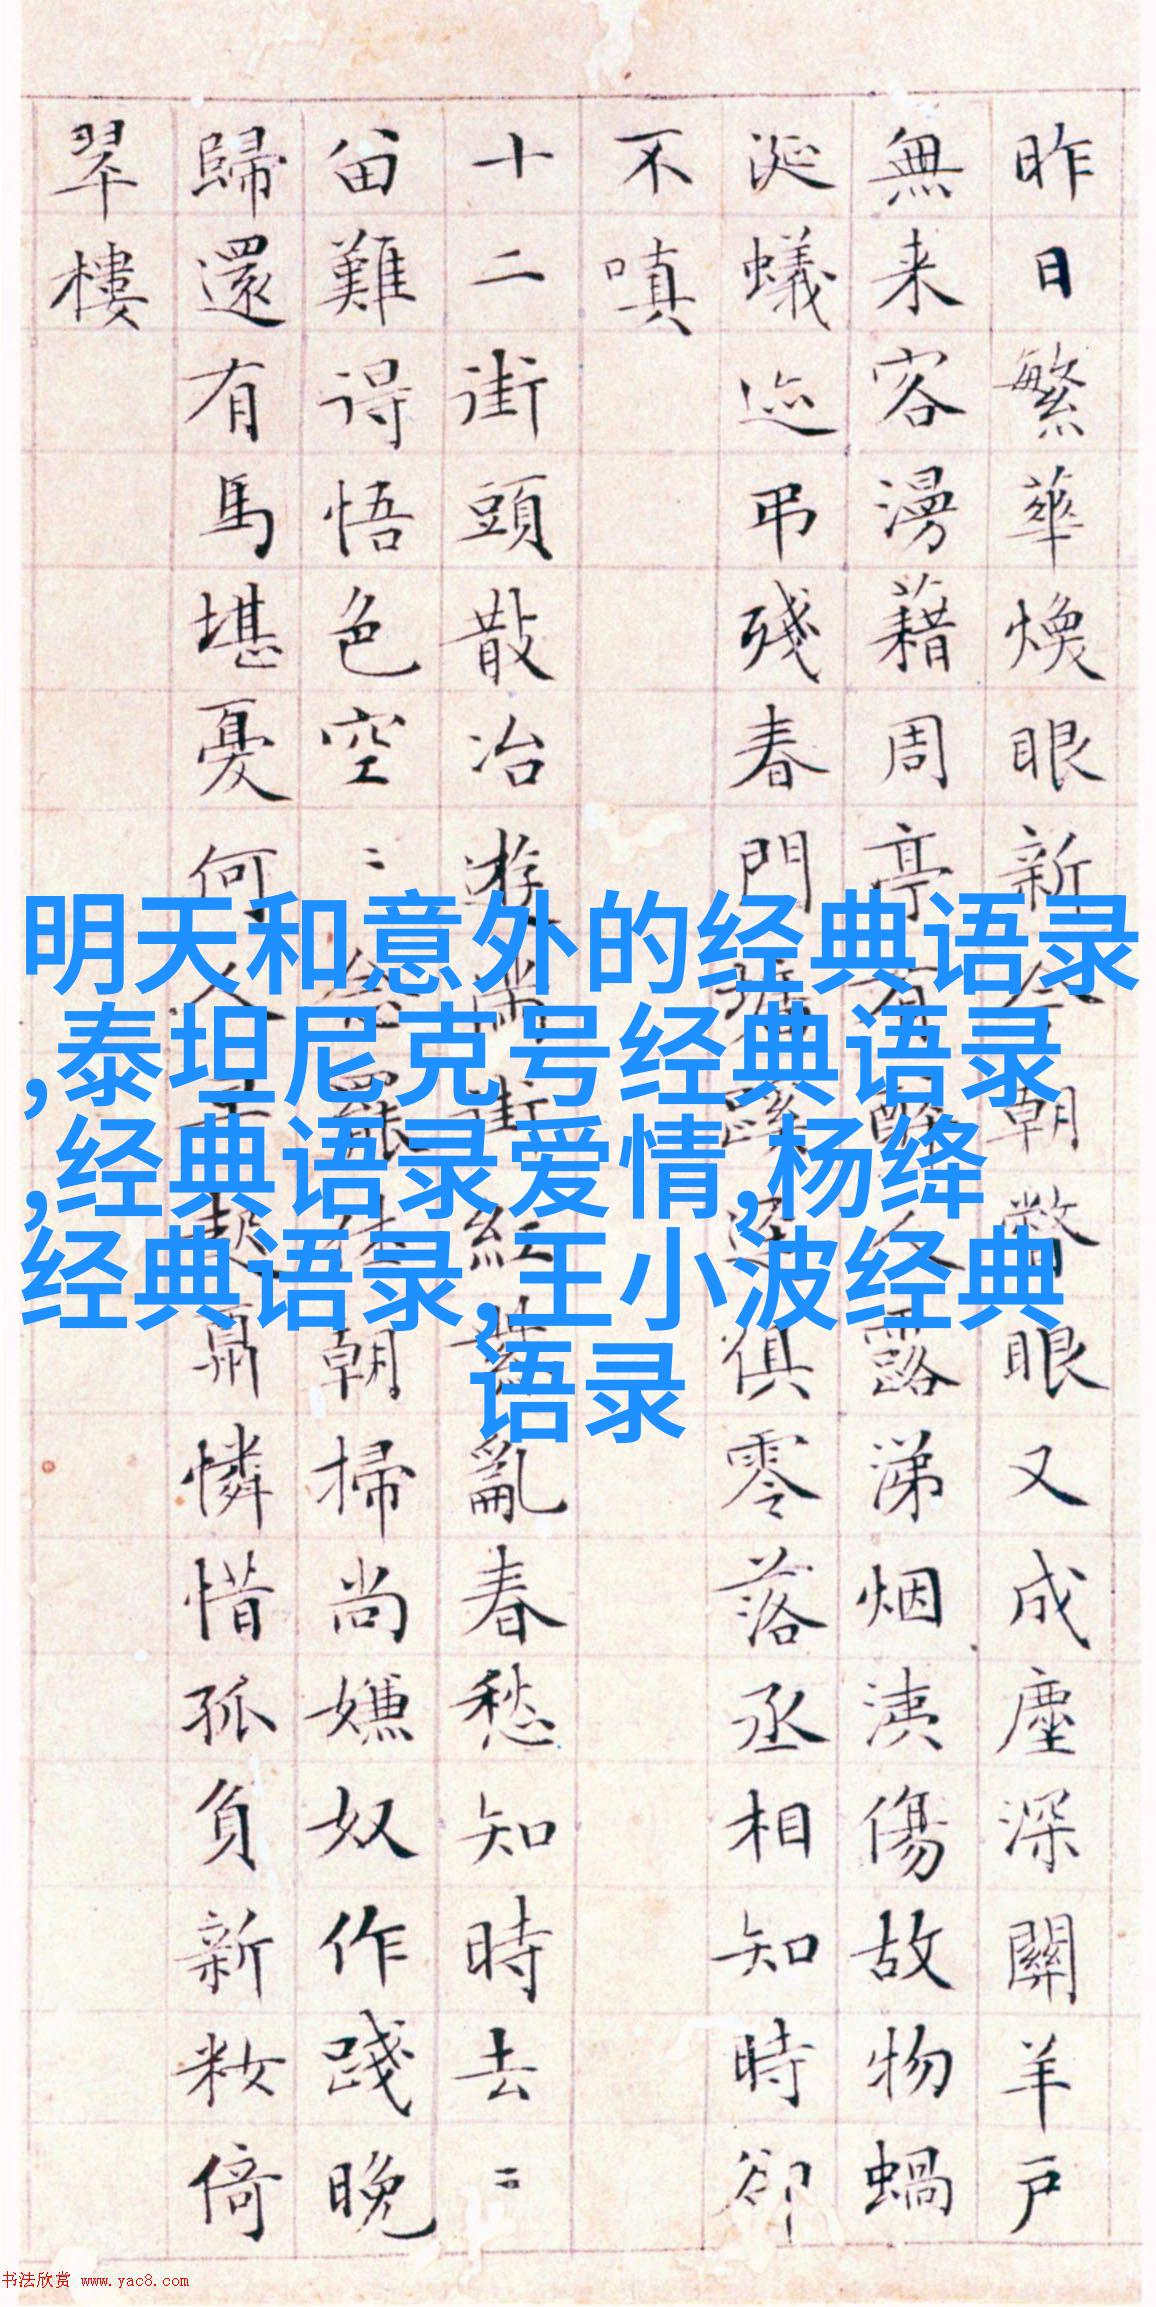 昨日繁華煥眼新今朝瞥眼又成塵深關羊戶
無来客漫藉周亭有醉人露涕烟洟傷故物蝸
涎蟻迹弔殘春門墻蹊逕俱零落丞相知時卻
不嗔
十二街頭散冶遊滿街紅紫亂春愁知時去〻
畱難得悟色空〻念罷休朝掃尚嫌奴作踐晚
歸還有馬堪憂何人早起肩憐惜孤負新妝倚
翠樓
明天和意外的经典语录
,泰坦尼克号经典语录
,经典语录爱情,杨绛
经典语录,王小波经典
语录
书法欣赏 www.yac8.com